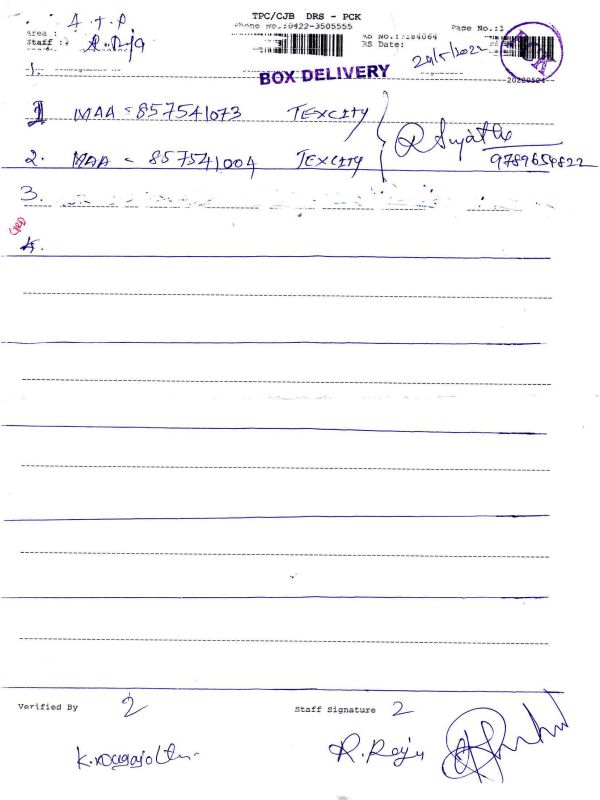 A T P
TPC/CJB DRS - PCK
Phone No.:0422-3505555
Page No.:1
Area :
Staff :
RS No.:7184064
RS Date:
24/5/2022
1.
BOX DELIVERY
20220524
1 MAA = 857541073 TEXCITY
2. MAA = 857541004 TEXCITY
9789654822
3.
4.
Verified By 2
Staff Signature 2
R. Raju